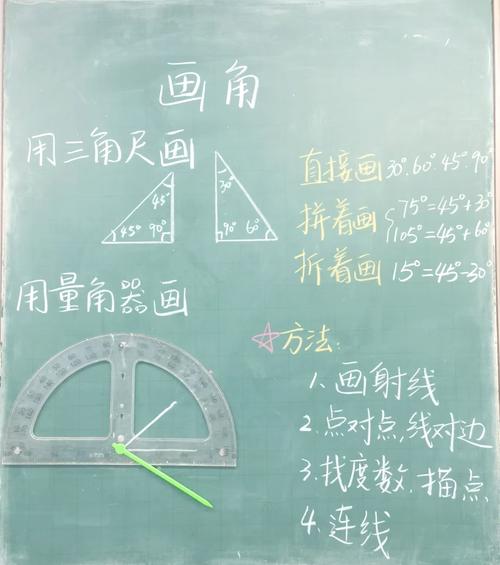 画角
用三角尺画
45°
45° 90°
30°
90° 60°
直接画 30°.60° 45°.90°
拼着画 { 75°=45°+30°
105°=45°+60°
折着画 15°=45°-30°
用量角器画
☆方法:
1、画射线
2.点对点,线对边
3.找度数.描点
4.连线